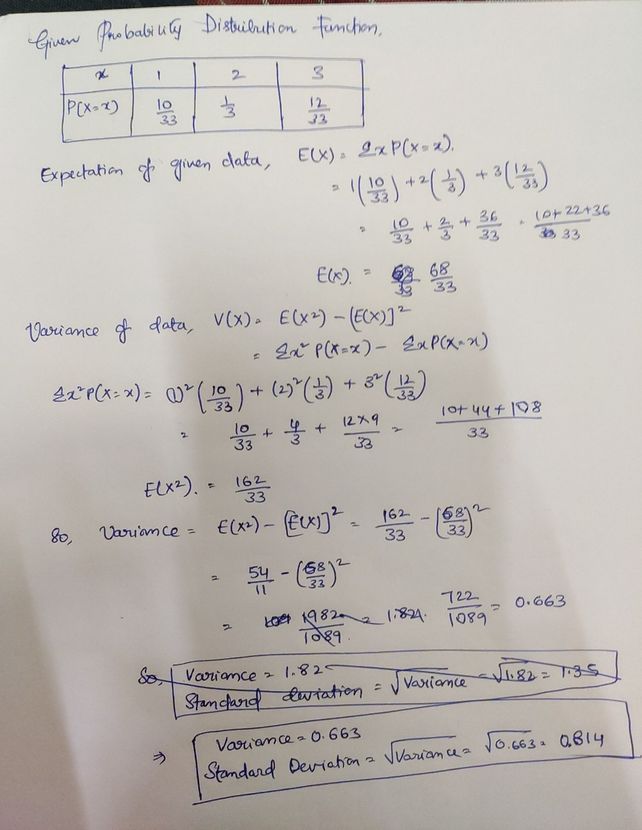 Given Probability Distribution Function,
x 1 2 3
P(X=x) 10/33 1/3 12/33
Expectation of given data, E(X) = ΣxP(X=x).
= 1(10/33) + 2(1/3) + 3(12/33)
= 10/33 + 2/3 + 36/33 = 10+22+36/33
E(X). = 68/33
Variance of data, V(X) = E(X²) - [E(X)]²
= Σx² P(X=x) - ΣxP(X=x)
Σx²P(X=x) = (1)²(10/33) + (2)²(1/3) + 3²(12/33)
= 10/33 + 4/3 + 12×9/33 = 10+44+108/33
E(X²). = 162/33
So, Variance = E(X²) - [E(X)]² = 162/33 - (68/33)²
= 54/11 - (68/33)²
= 1982/1089. = 1.821. 722/1089 = 0.663
So, Variance = 1.82
Standard deviation = √Variance = √1.82 = 1.35
⇒ Variance = 0.663
Standard Deviation = √Variance = √0.663 = 0.814